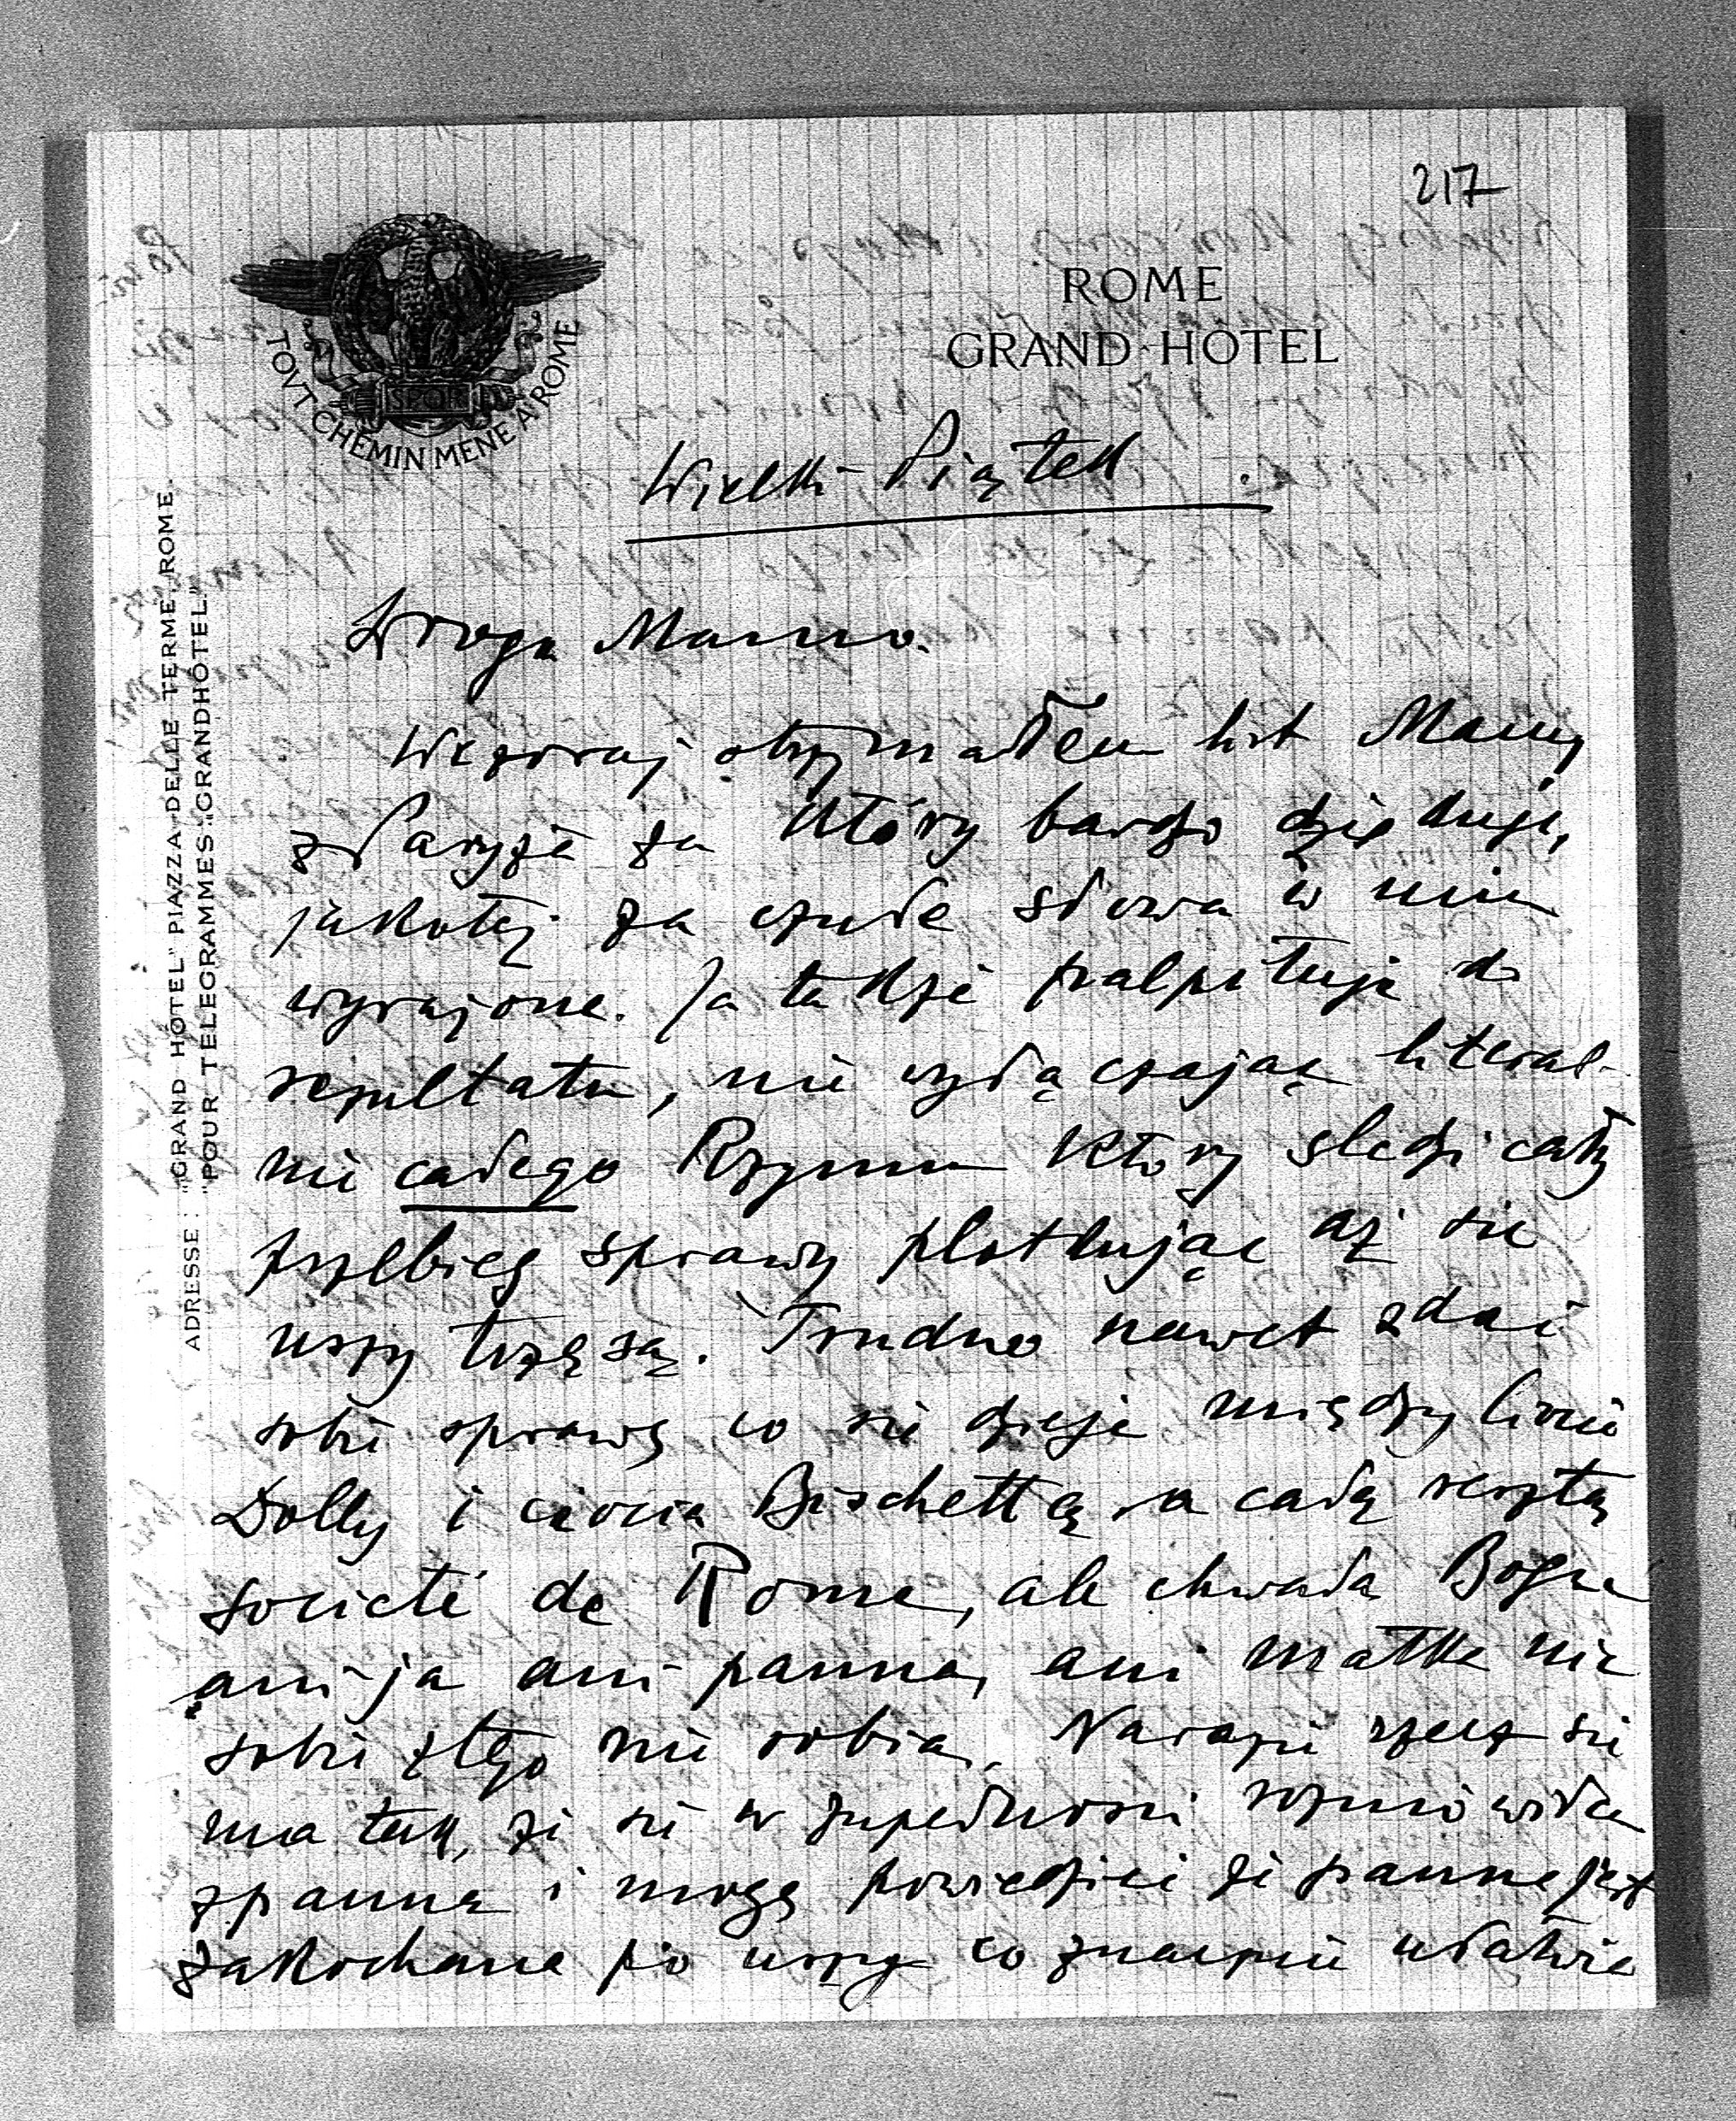 217
ROME
GRAND HOTEL
SPQR
TOVT CHEMIN MENE A ROME
ADRESSE: "GRAND HOTEL" PIAZZA DELLE TERME, ROME.
"POUR TELEGRAMMES "GRANDHÔTEL"
Wielki-Piątek.
Droga Mamo.
Wczoraj otrzymałem list Mamy
z Paryża za który bardzo dziękuję,
jakoteż za czułe słowa w nim
wyrażone. Ja także palpituję do
rezultatu, nie wyłączając literal-
nie całego Rzymu który śledzi cały
przebieg sprawy plotkując aż się
uszy trzęsą. Trudno nawet zdać
sobie sprawę co się dzieje między Ciocią
Dolly i ciocią Bischettą a całą resztą
societé de Rome, ale chwała Bogu
ani ja ani panna, ani matka nic
sobie z tego nie robią. Narazie rzecz się
ma tak, że się w zupełności rozmówiłem
z panną i mogę powiedzieć że panna jest
zakochana po uszy co znacznie ułatwia